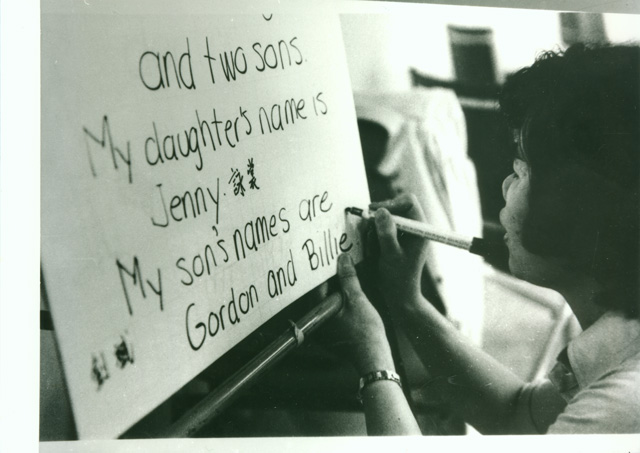 and two sons.
My daughter's name is
Jenny. 詠美
My son's names are
Gordon and Billie